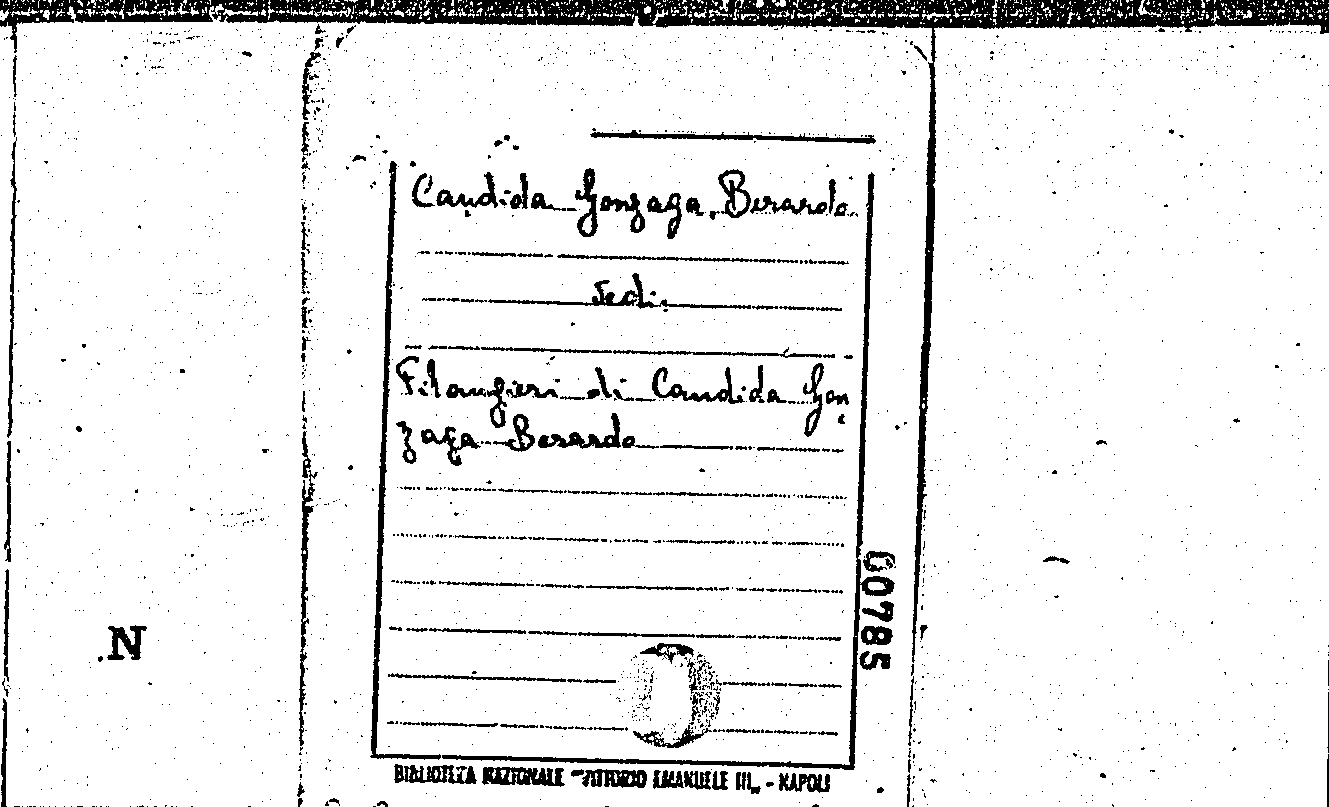 Candida Gonzaga, Berardo
Vedi:
Filangieri di Candida Gon
zaga Berardo
00785
N
BIBLIOTECA NAZIONALE "VITTORIO EMANUELE III„ - NAPOLI